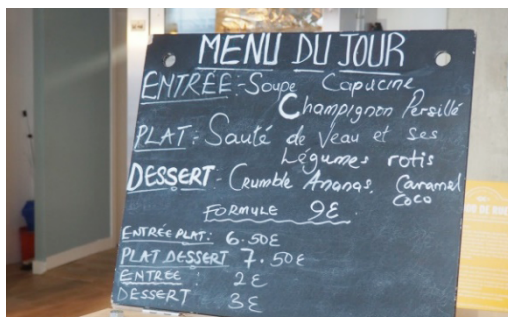 MENU DU JOUR
ENTRÉE: Soupe Capucine
Champignon Persillé
PLAT: Sauté de Veau et ses
Légumes rotis
DESSERT: Crumble Ananas, Caramel
Coco
FORMULE 9€
ENTRÉE PLAT: 6.50€
PLAT DESSERT 7.50€
ENTRÉE : 2€
DESSERT 3€